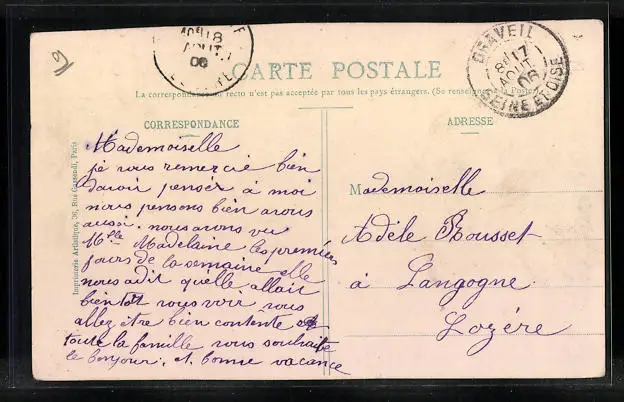 10E 18
AOUT
06
DRAVEIL
8E 17
AOUT
06
SEINE ET OISE
CARTE POSTALE
La correspondance au recto n'est pas acceptée par tous les pays étrangers. (Se renseigner à la Poste)
CORRESPONDANCE
ADRESSE
Imprimerie Artistique, 36, Rue Gassendi, Paris
Mademoiselle
je vous remercie bien
davoir penser à moi
nous pensons bien avous
aussi. nous avons vu
Mlle Madelaine les premiers
jours de la semaine elle
nous adit quelle allait
bientot vous voir vous
allez être bien contente
toute la famille vous souhaite
le bonjour. et bonne vacance
Mademoiselle
Adèle Rousset
à Langogne
Lozère